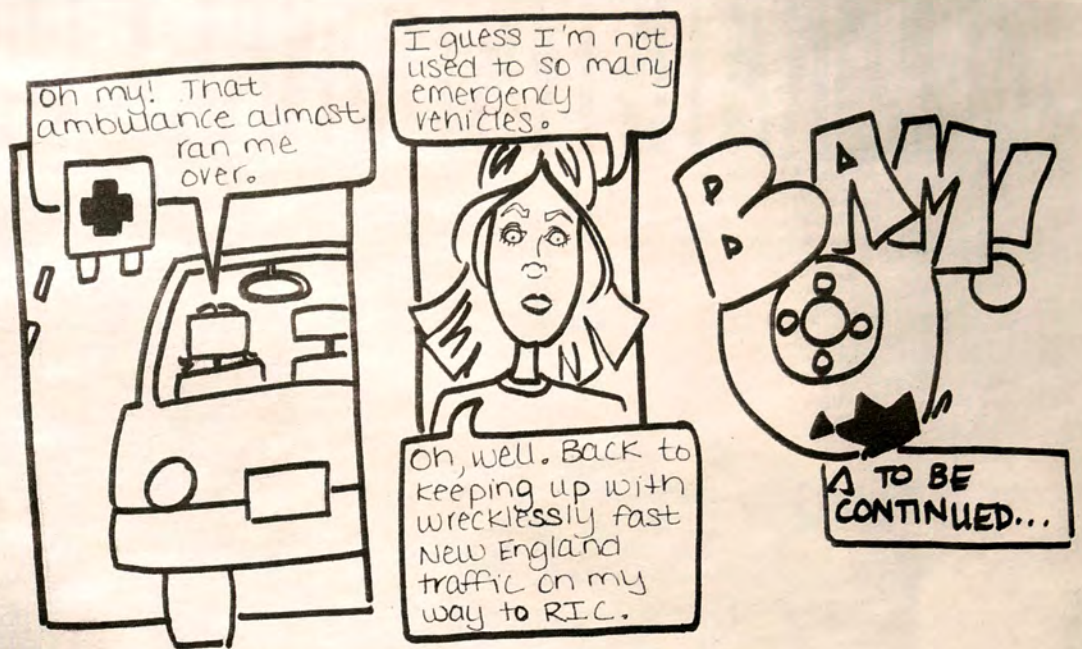 Oh my! That
ambulance almost
ran me
over.
I guess I'm not
used to so many
emergency
vehicles.
Oh, well. Back to
keeping up with
wrecklessly fast
New England
traffic on my
way to RIC.
BAM!
TO BE
CONTINUED...